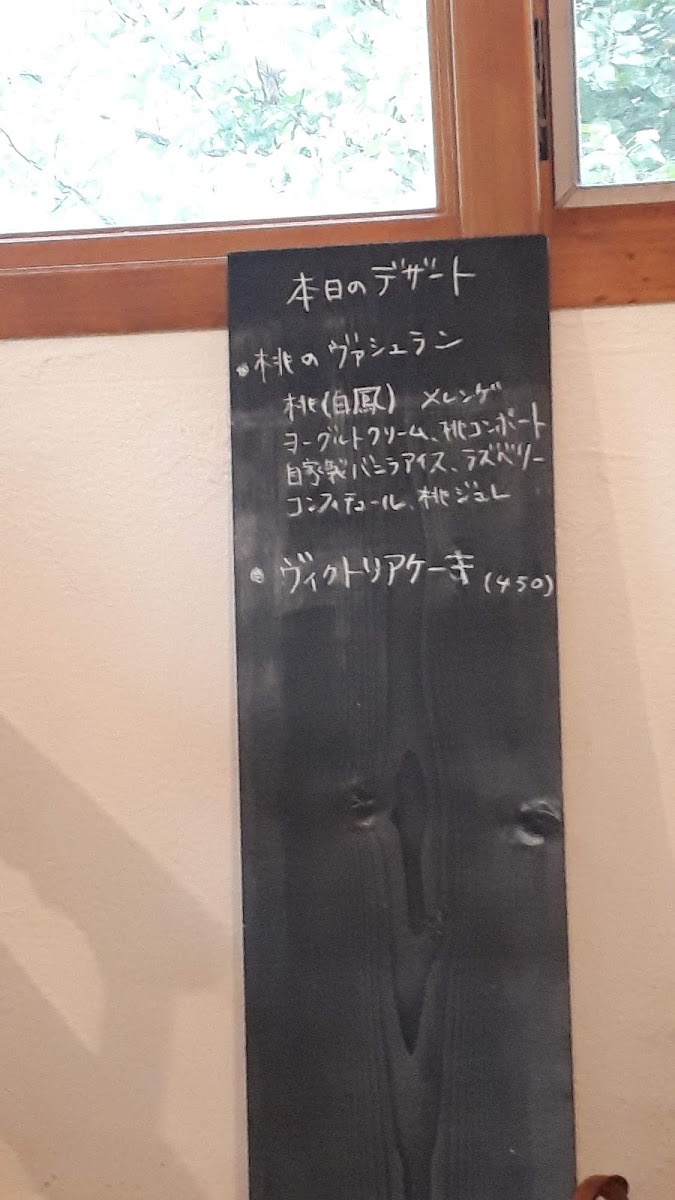 本日のデザート
• 桃のヴァシュラン
桃(白鳳) メレンゲ
ヨーグルトクリーム、桃コンポート
自家製バニラアイス、ラズベリー
コンフィチュール、桃ジュレ
• ヴィクトリアケーキ (450)